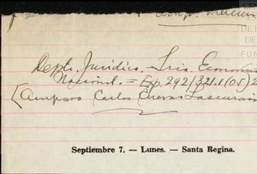 Depto. Jurídico. Sría. Economía
Nacional. = Exp. 292/321.1(05)2
(Amparo Carlos Cuevas Lascurain
Septiembre 7. — Lunes. — Santa Regina.